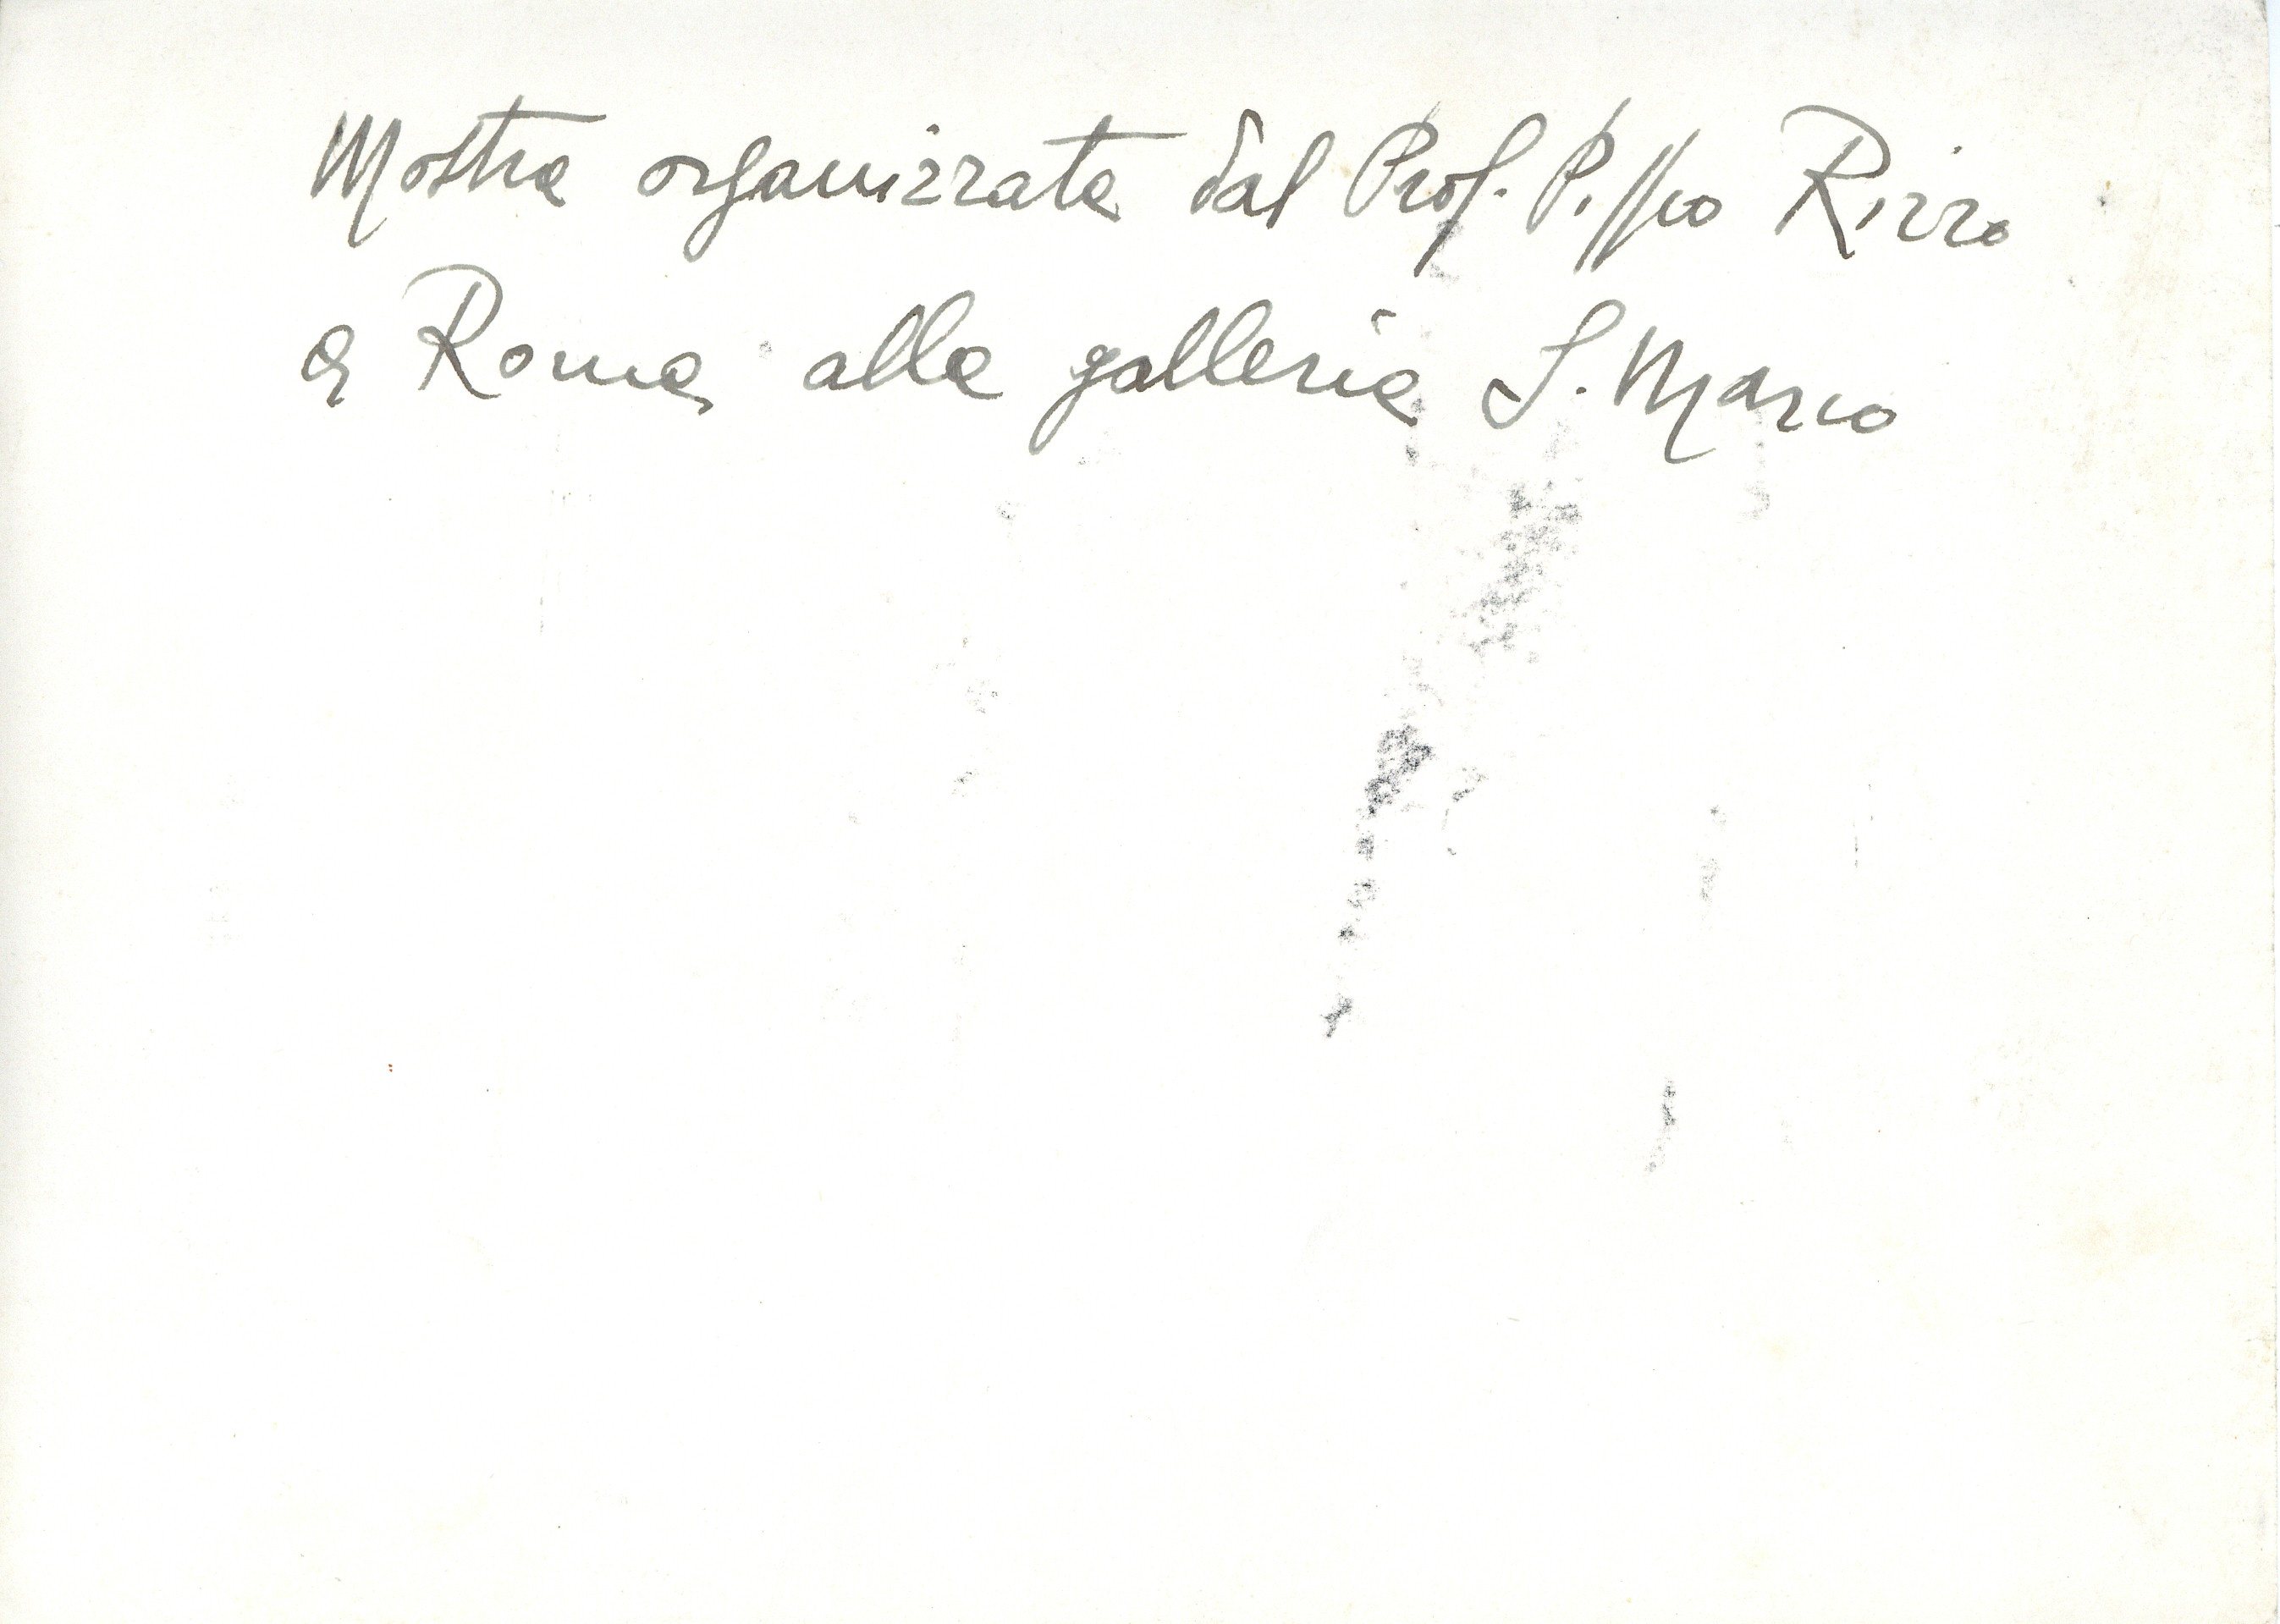 Mostra organizzata dal Prof. Pippo Rizzo
a Roma alla galleria S. Marco